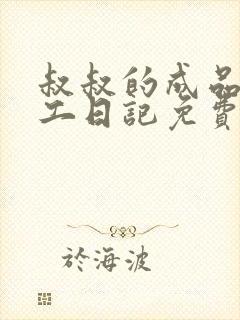 叔叔的成品
工日記免費
於海波